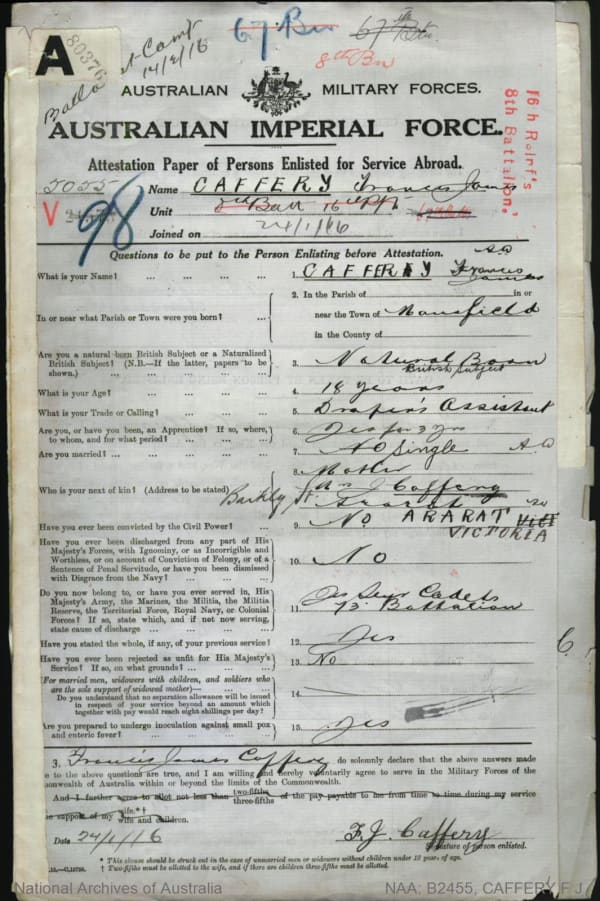 A
80376
14/2/16
67 Bn
67th Bn
8th Bn
AUSTRALIAN MILITARY FORCES.
AUSTRALIAN IMPERIAL FORCE.
16th Reinf's
8th Battalion.
Attestation Paper of Persons Enlisted for Service Abroad.
5055
V
98
Name CAFFERY Francis James
Unit 16
Joined on 24/1/16
Questions to be put to the Person Enlisting before Attestation.
What is your Name? ... ... ... ... 1. CAFFERY Francis James
2. In the Parish of in or
In or near what Parish or Town were you born? ... near the Town of Mansfield
in the County of
Are you a natural born British Subject or a Naturalized
British Subject? (N.B.—If the latter, papers to be
shown.) ... ... ... 3. Natural Born
British Subject
What is your Age? ... ... ... ... 4. 18 years
What is your Trade or Calling? ... ... ... 5. Draper's Assistant
Are you, or have you been, an Apprentice? If so, where,
to whom, and for what period? ... ... 6. Yes for 3 yrs
Are you married? ... ... ... ... 7. No Single
8. Mother
Who is your next of kin? (Address to be stated) Mrs J Caffery
Barkly St. Ararat
Have you ever been convicted by the Civil Power? ... 9. No ARARAT
VICTORIA
Have you ever been discharged from any part of His
Majesty's Forces, with Ignominy, or as Incorrigible and
Worthless, or on account of Conviction of Felony, or of a
Sentence of Penal Servitude, or have you been dismissed
with Disgrace from the Navy? ... ... 10. No
Do you now belong to, or have you ever served in, His
Majesty's Army, the Marines, the Militia, the Militia
Reserve, the Territorial Force, Royal Navy, or Colonial
Forces? If so, state which, and if not now serving,
state cause of discharge ... ... ... 11. Senr Cadets
73 Battalion
Have you stated the whole, if any, of your previous service? 12. Yes
Have you ever been rejected as unfit for His Majesty's
Service? If so, on what grounds? ... ... 13. No
(For married men, widowers with children, and soldiers who
are the sole support of widowed mother)—
Do you understand that no separation allowance will be issued
in respect of your service beyond an amount which
together with pay would reach eight shillings per day? 14.
Are you prepared to undergo inoculation against small pox
and enteric fever? ... ... ... 15. Yes
3. Francis James Caffery do solemnly declare that the above answers made
to the above questions are true, and I am willing and hereby voluntarily agree to serve in the Military Forces of the
Commonwealth of Australia within or beyond the limits of the Commonwealth.
And I further agree to allot not less than two-fifths three-fifths of the pay payable to me from time to time during my service
the support of my wife.*†
wife and children.
Date 24/1/16 F. J. Caffery
Signature of person enlisted.
* This clause should be struck out in the case of unmarried men or widowers without children under 18 years of age.
† Two-fifths must be allotted to the wife, and if there are children three-fifths must be allotted.
National Archives of Australia NAA: B2455, CAFFERY F J